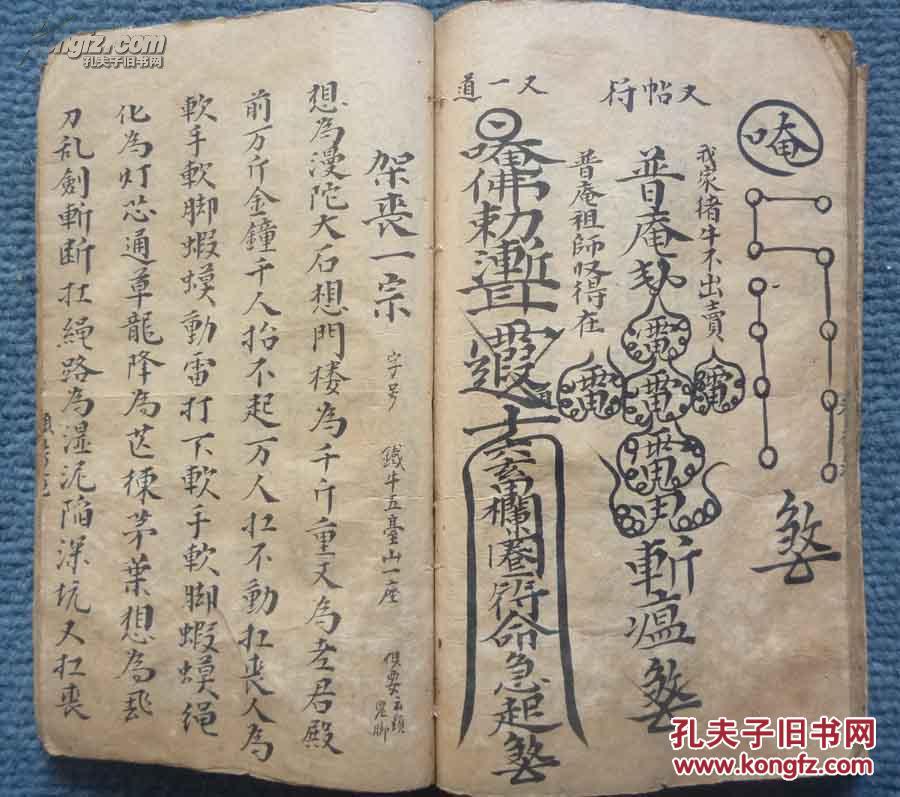 唵
又帖符
我家猪牛不出賣
普庵
斬瘟煞
普庵祖師怪得在
又一道
唵佛勅
六玄欄圈符命急起煞
架喪一宗
字号
鐵牛五臺山一座
想為漫陀大石想門楼為千斤重又為老君殿
前万斤金鐘千人抬不起万人扛不動扛喪人為
軟手軟脚蝦蟆動雷打下軟手軟脚蝦蟆绳
化為灯芯通草龍降為芭棟茅葉想為乱
刀乱劍斬断扛繩路為湿泥陥深坑又扛喪
kongfz.com
孔夫子旧书网
孔夫子旧书网
kongfz.com